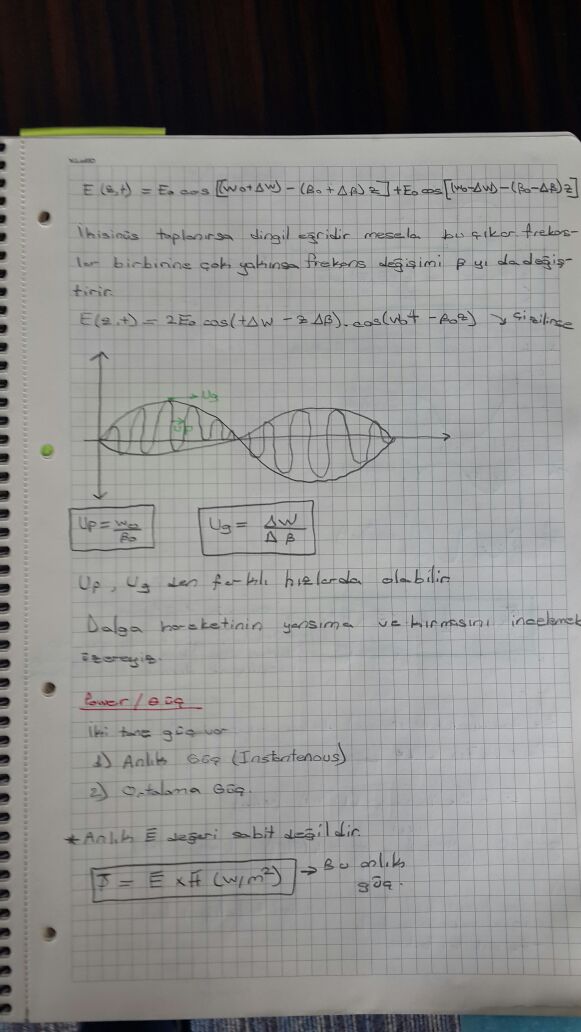 E(z,t) = E₀ cos[(w₀+Δw) - (β₀+Δβ)z] + E₀ cos[(w₀-Δw) - (β₀-Δβ)z]
İkisinüs toplanırsa dingil eğridir mesela bu çıkar frekans-
lar birbirine çok yakınsa frekans değişimi β yı da değiş-
tirir.
E(z,t) = 2E₀ cos(tΔw - zΔβ).cos(w₀t - β₀z) → çizilince
→ Ug
Up
Up = w₀/β₀
Ug = Δw/Δβ
Up, Ug den farklı hızlarda olabilir
Dalga hareketinin yansıma ve kırmasını incelemek
üzereyiz.
Power / Güç
İki tane güç var
1) Anlık Güç (Instentenous)
2) Ortalama Güç.
* Anlık E değeri sabit değildir.
J = E x H (W/m²) → Bu anlık
güç.